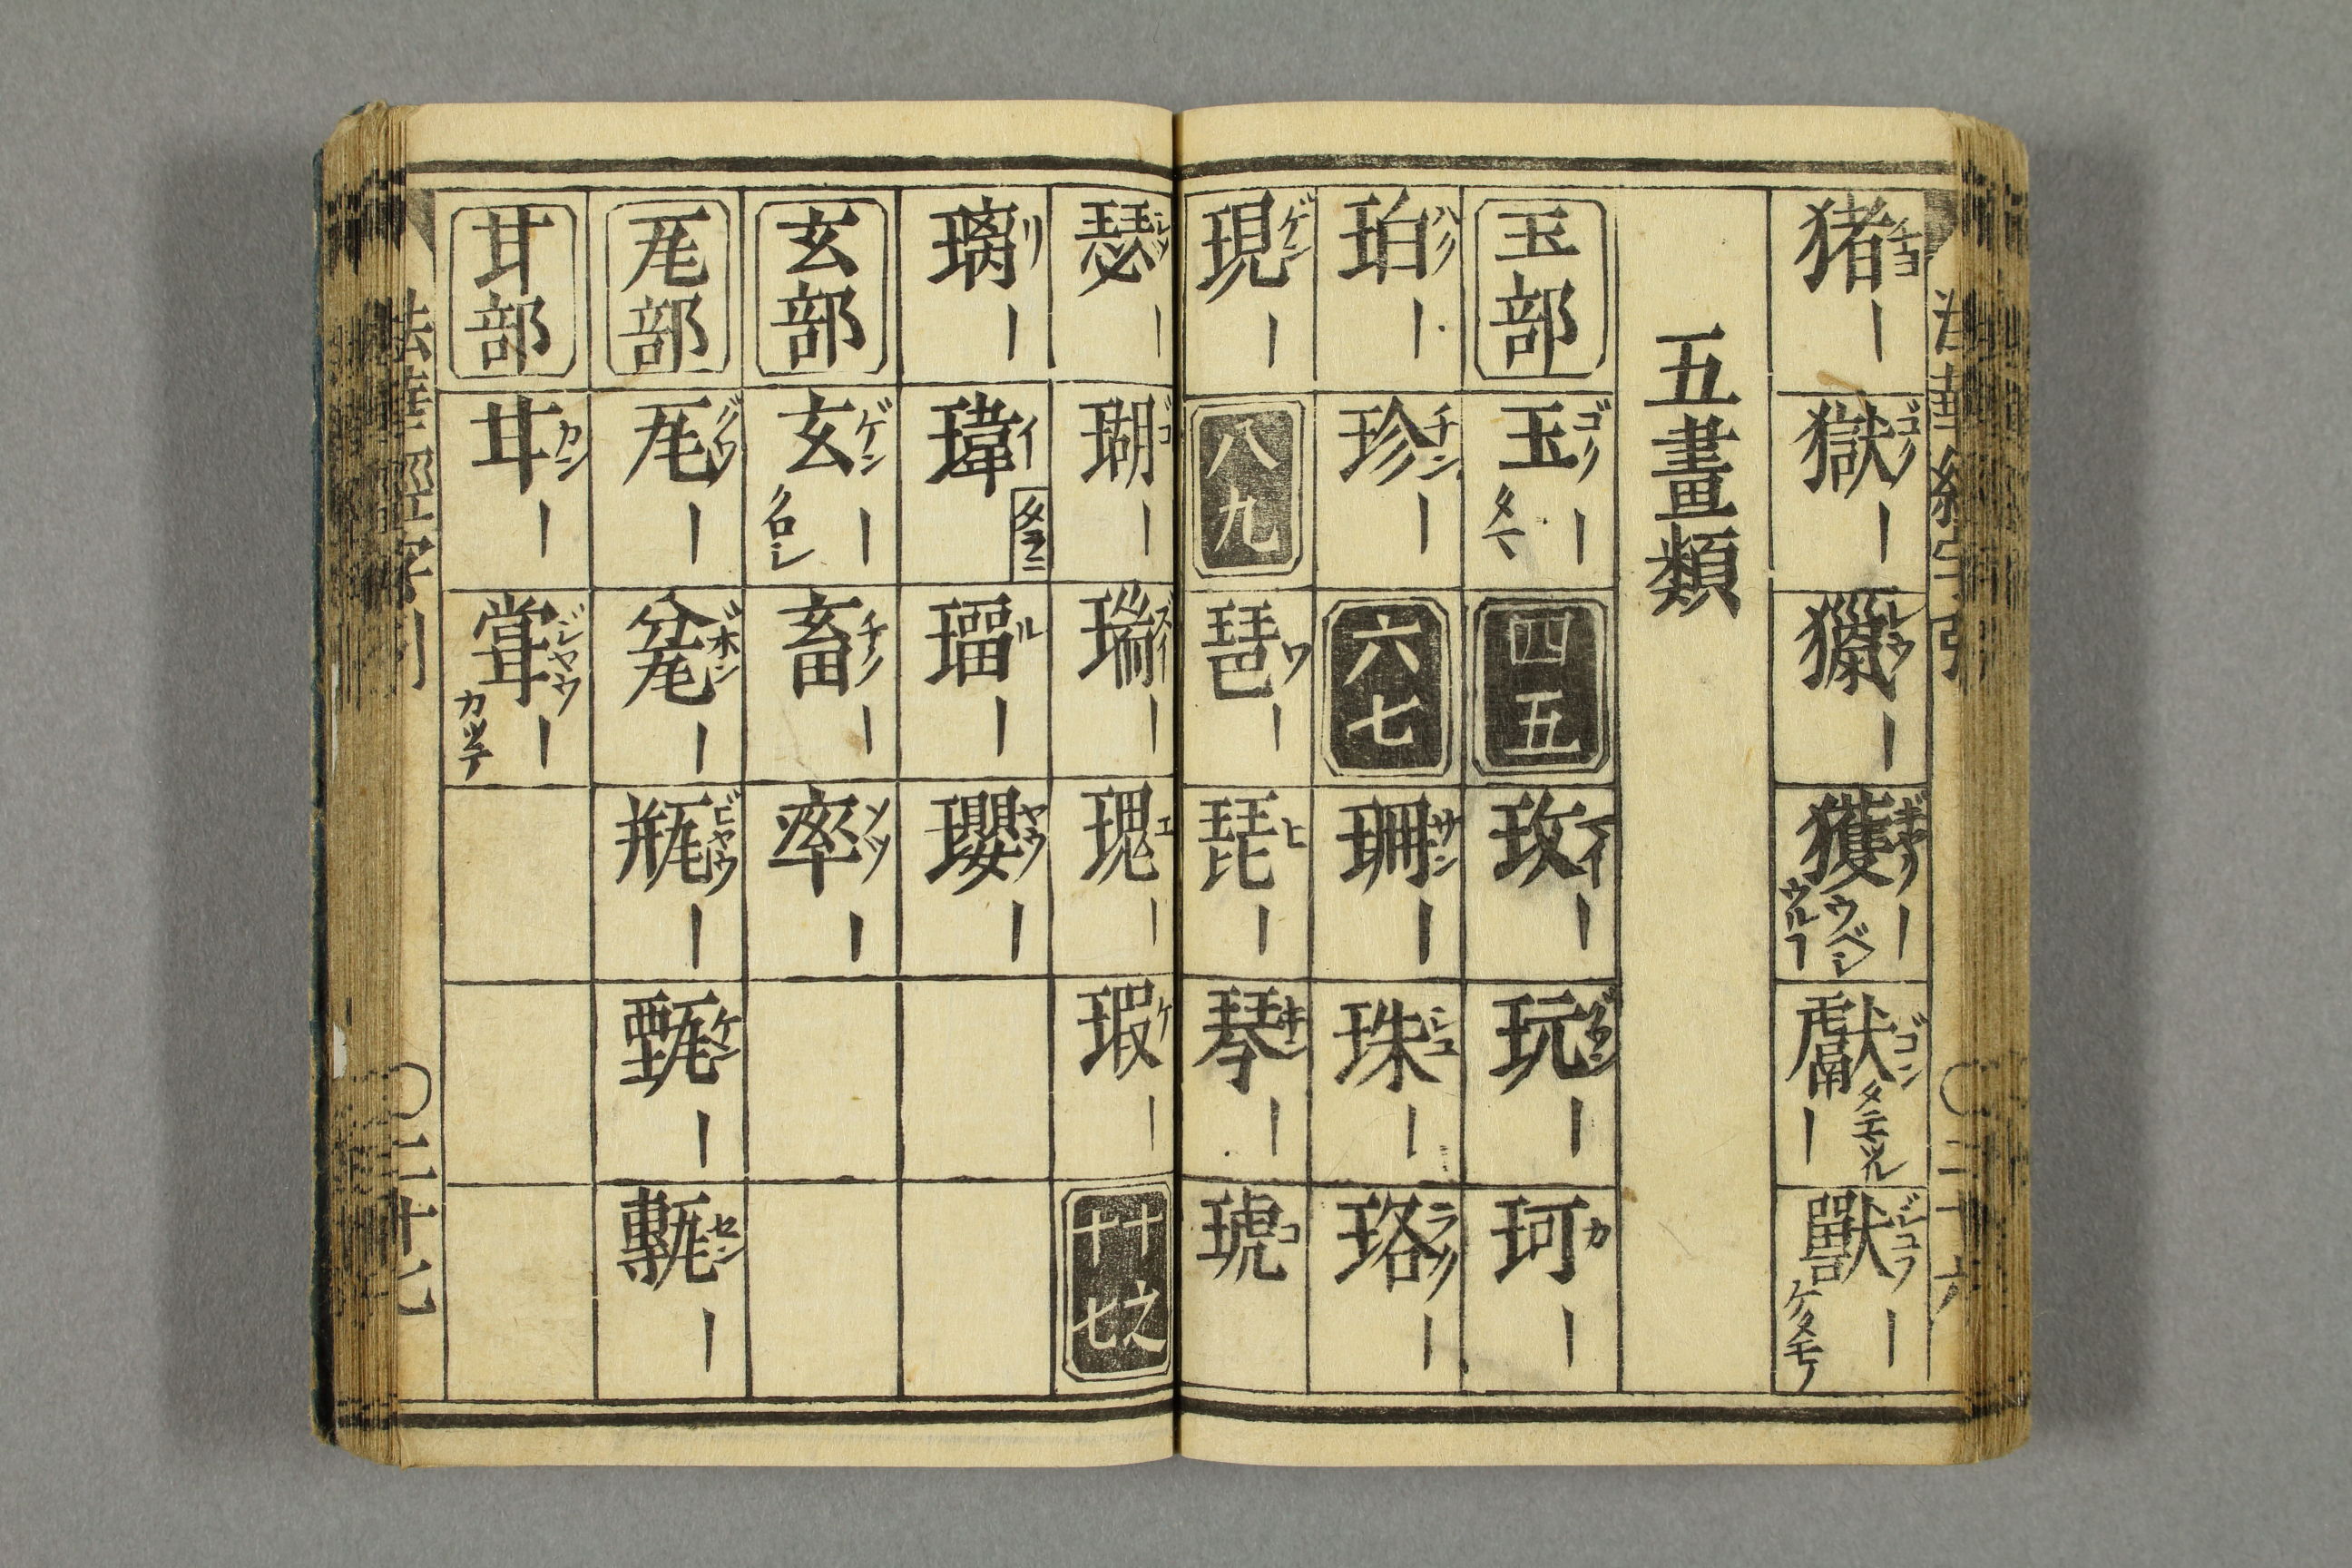 猪チヨ｜
獄ゴク｜
獵レウ｜
獲ギヤク｜ウベシ ウル
獻ゴン｜タテマツル
獸シユフ｜ケタモノ
五畫類
玉部
玉ゴク｜タマ
四五
玫マイ｜
玩グワン｜
珂カ｜
珀ハク｜
珍チン｜
六七
珊サン｜
珠シユ｜
珞ラク｜
現ゲン｜
八九
琶ワ｜
琵ヒ｜
琴キン｜
琥コ
瑟シツ｜
瑚ゴ｜
瑞ズイ｜
瑰エ｜
瑕ケ｜
十之十七
璃リ｜
瑋イ
瑠ル｜
瓔ヤウ｜
玄部
玄ゲン｜クロシ
畜チク｜
率ソツ｜
瓦部
瓦グワ｜
瓫ボン｜
瓶ビヤウ｜
甄ケン｜
甎セン｜
甘部
甘カン｜
甞ジヤウ｜カツテ
法華經字引
〇二十七